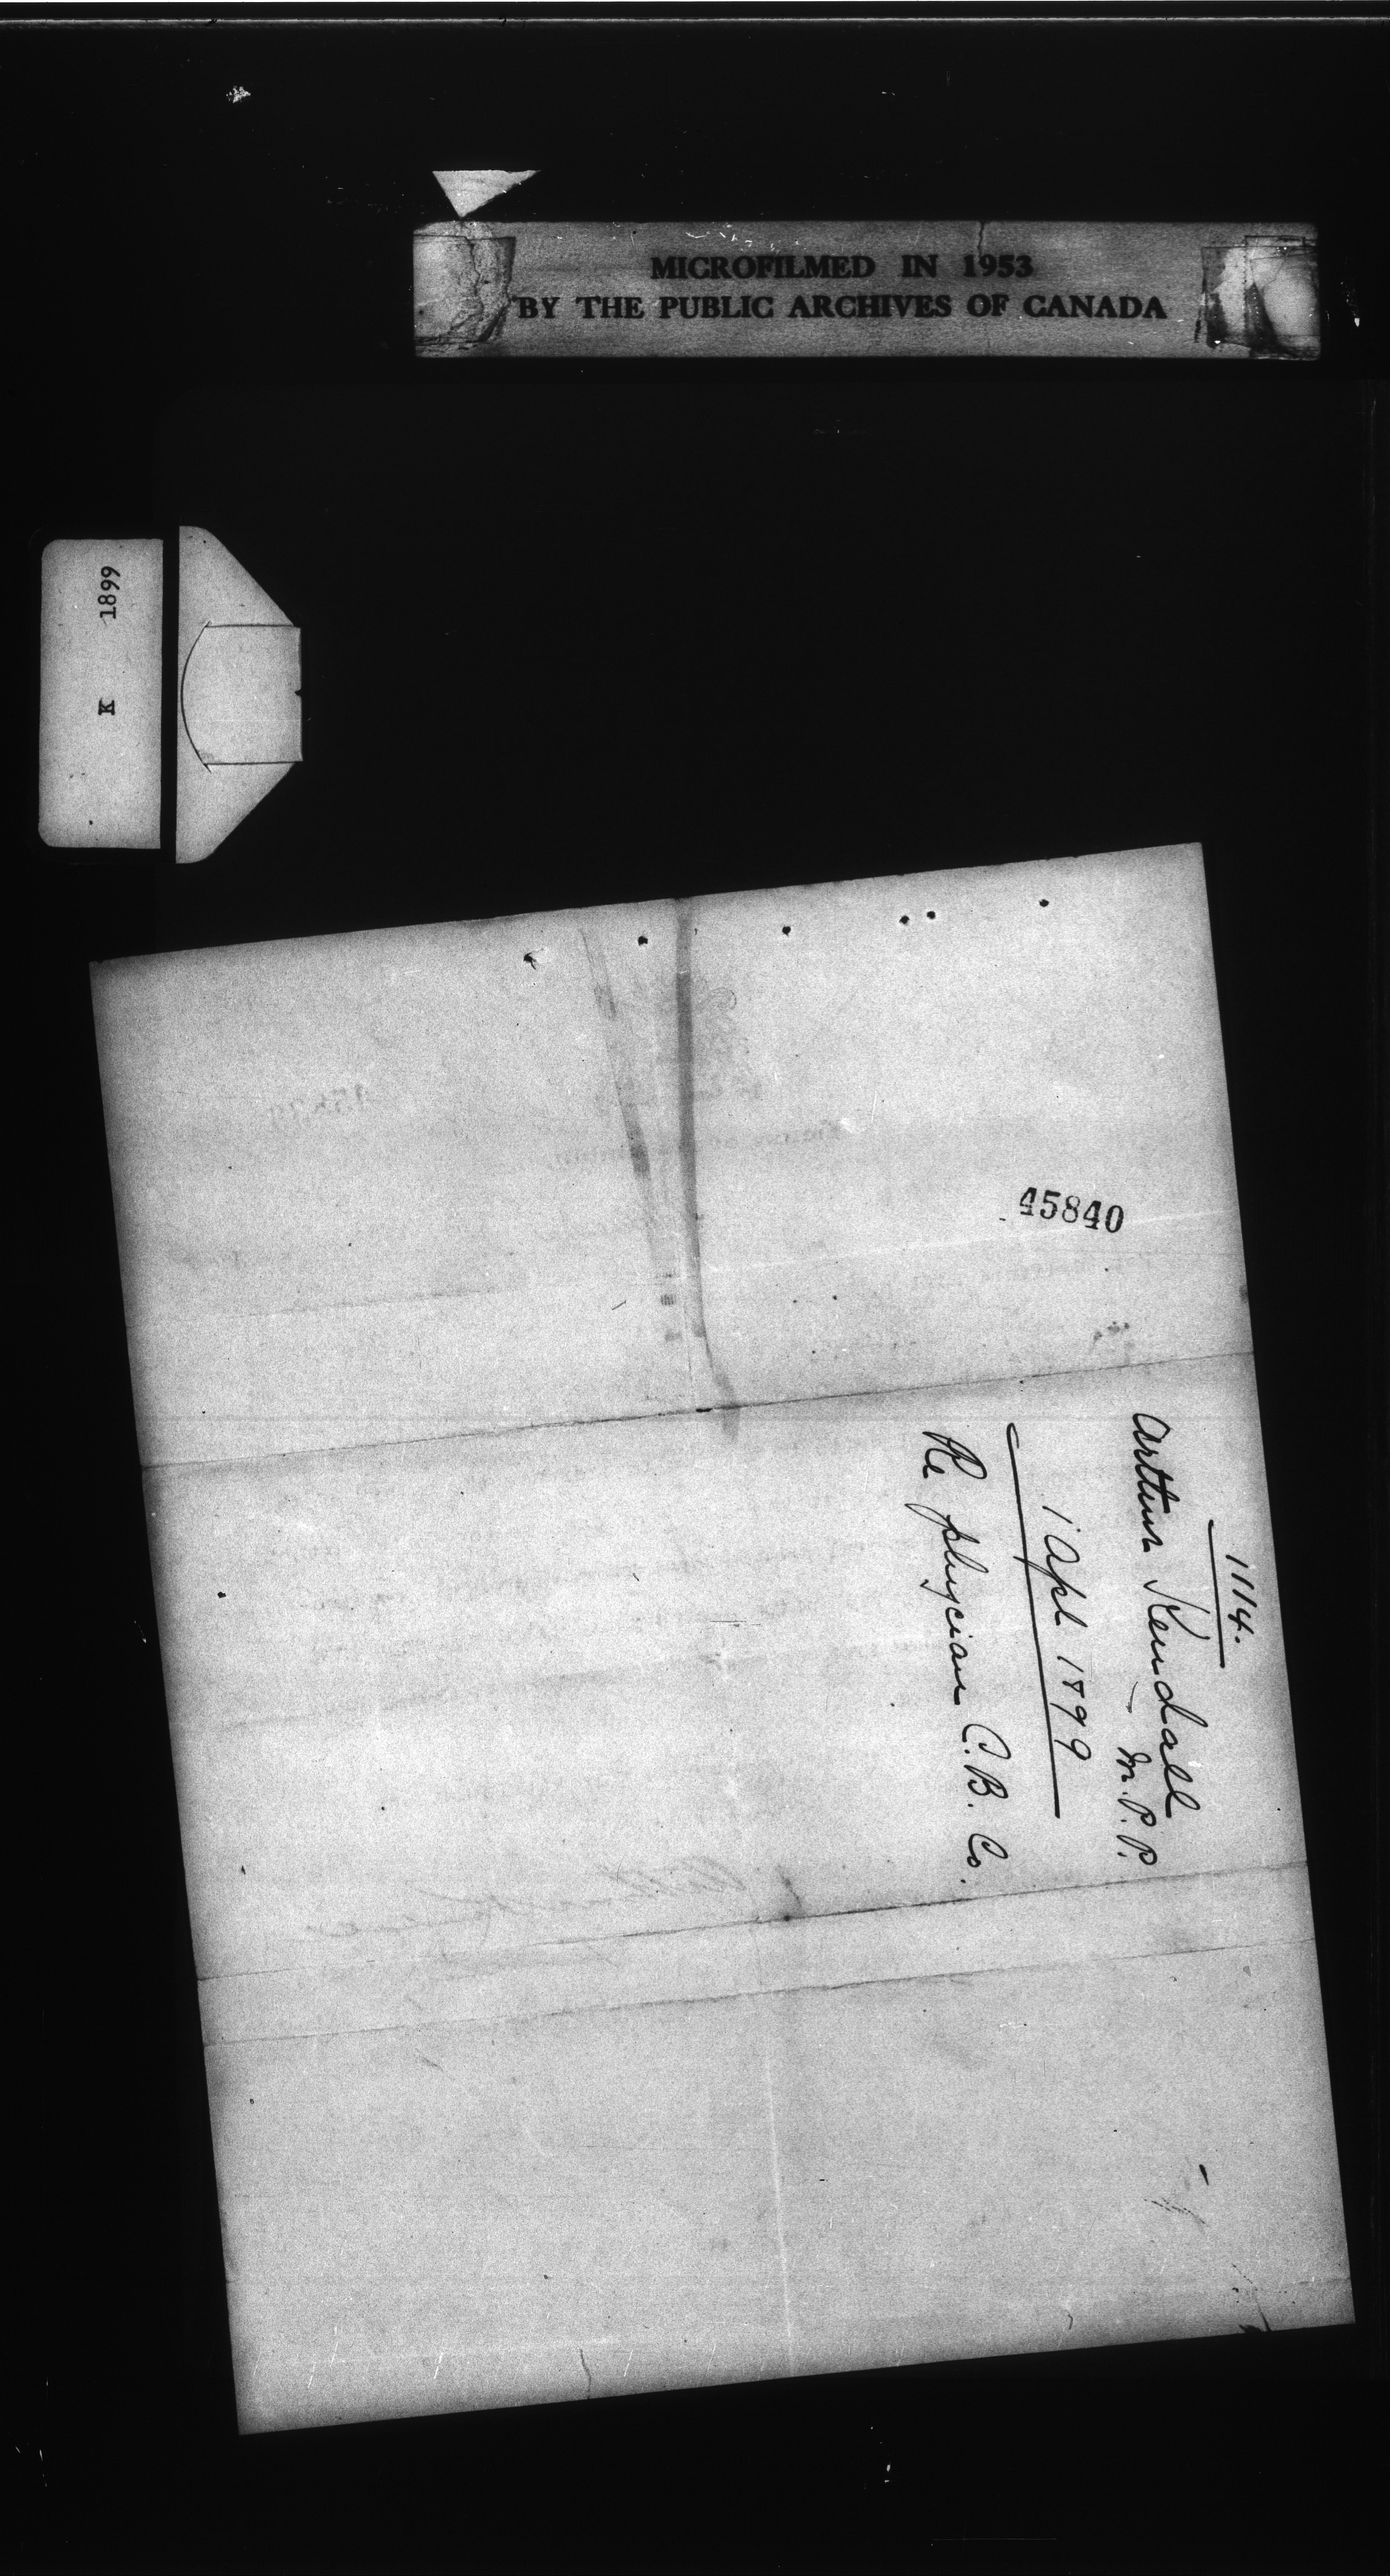 MICROFILMED IN 1953
BY THE PUBLIC ARCHIVES OF CANADA
K 1899
45840
1114.
Arthur Kendall
M.P.P.
1 Apl 1899
Re physician C.B. Co.